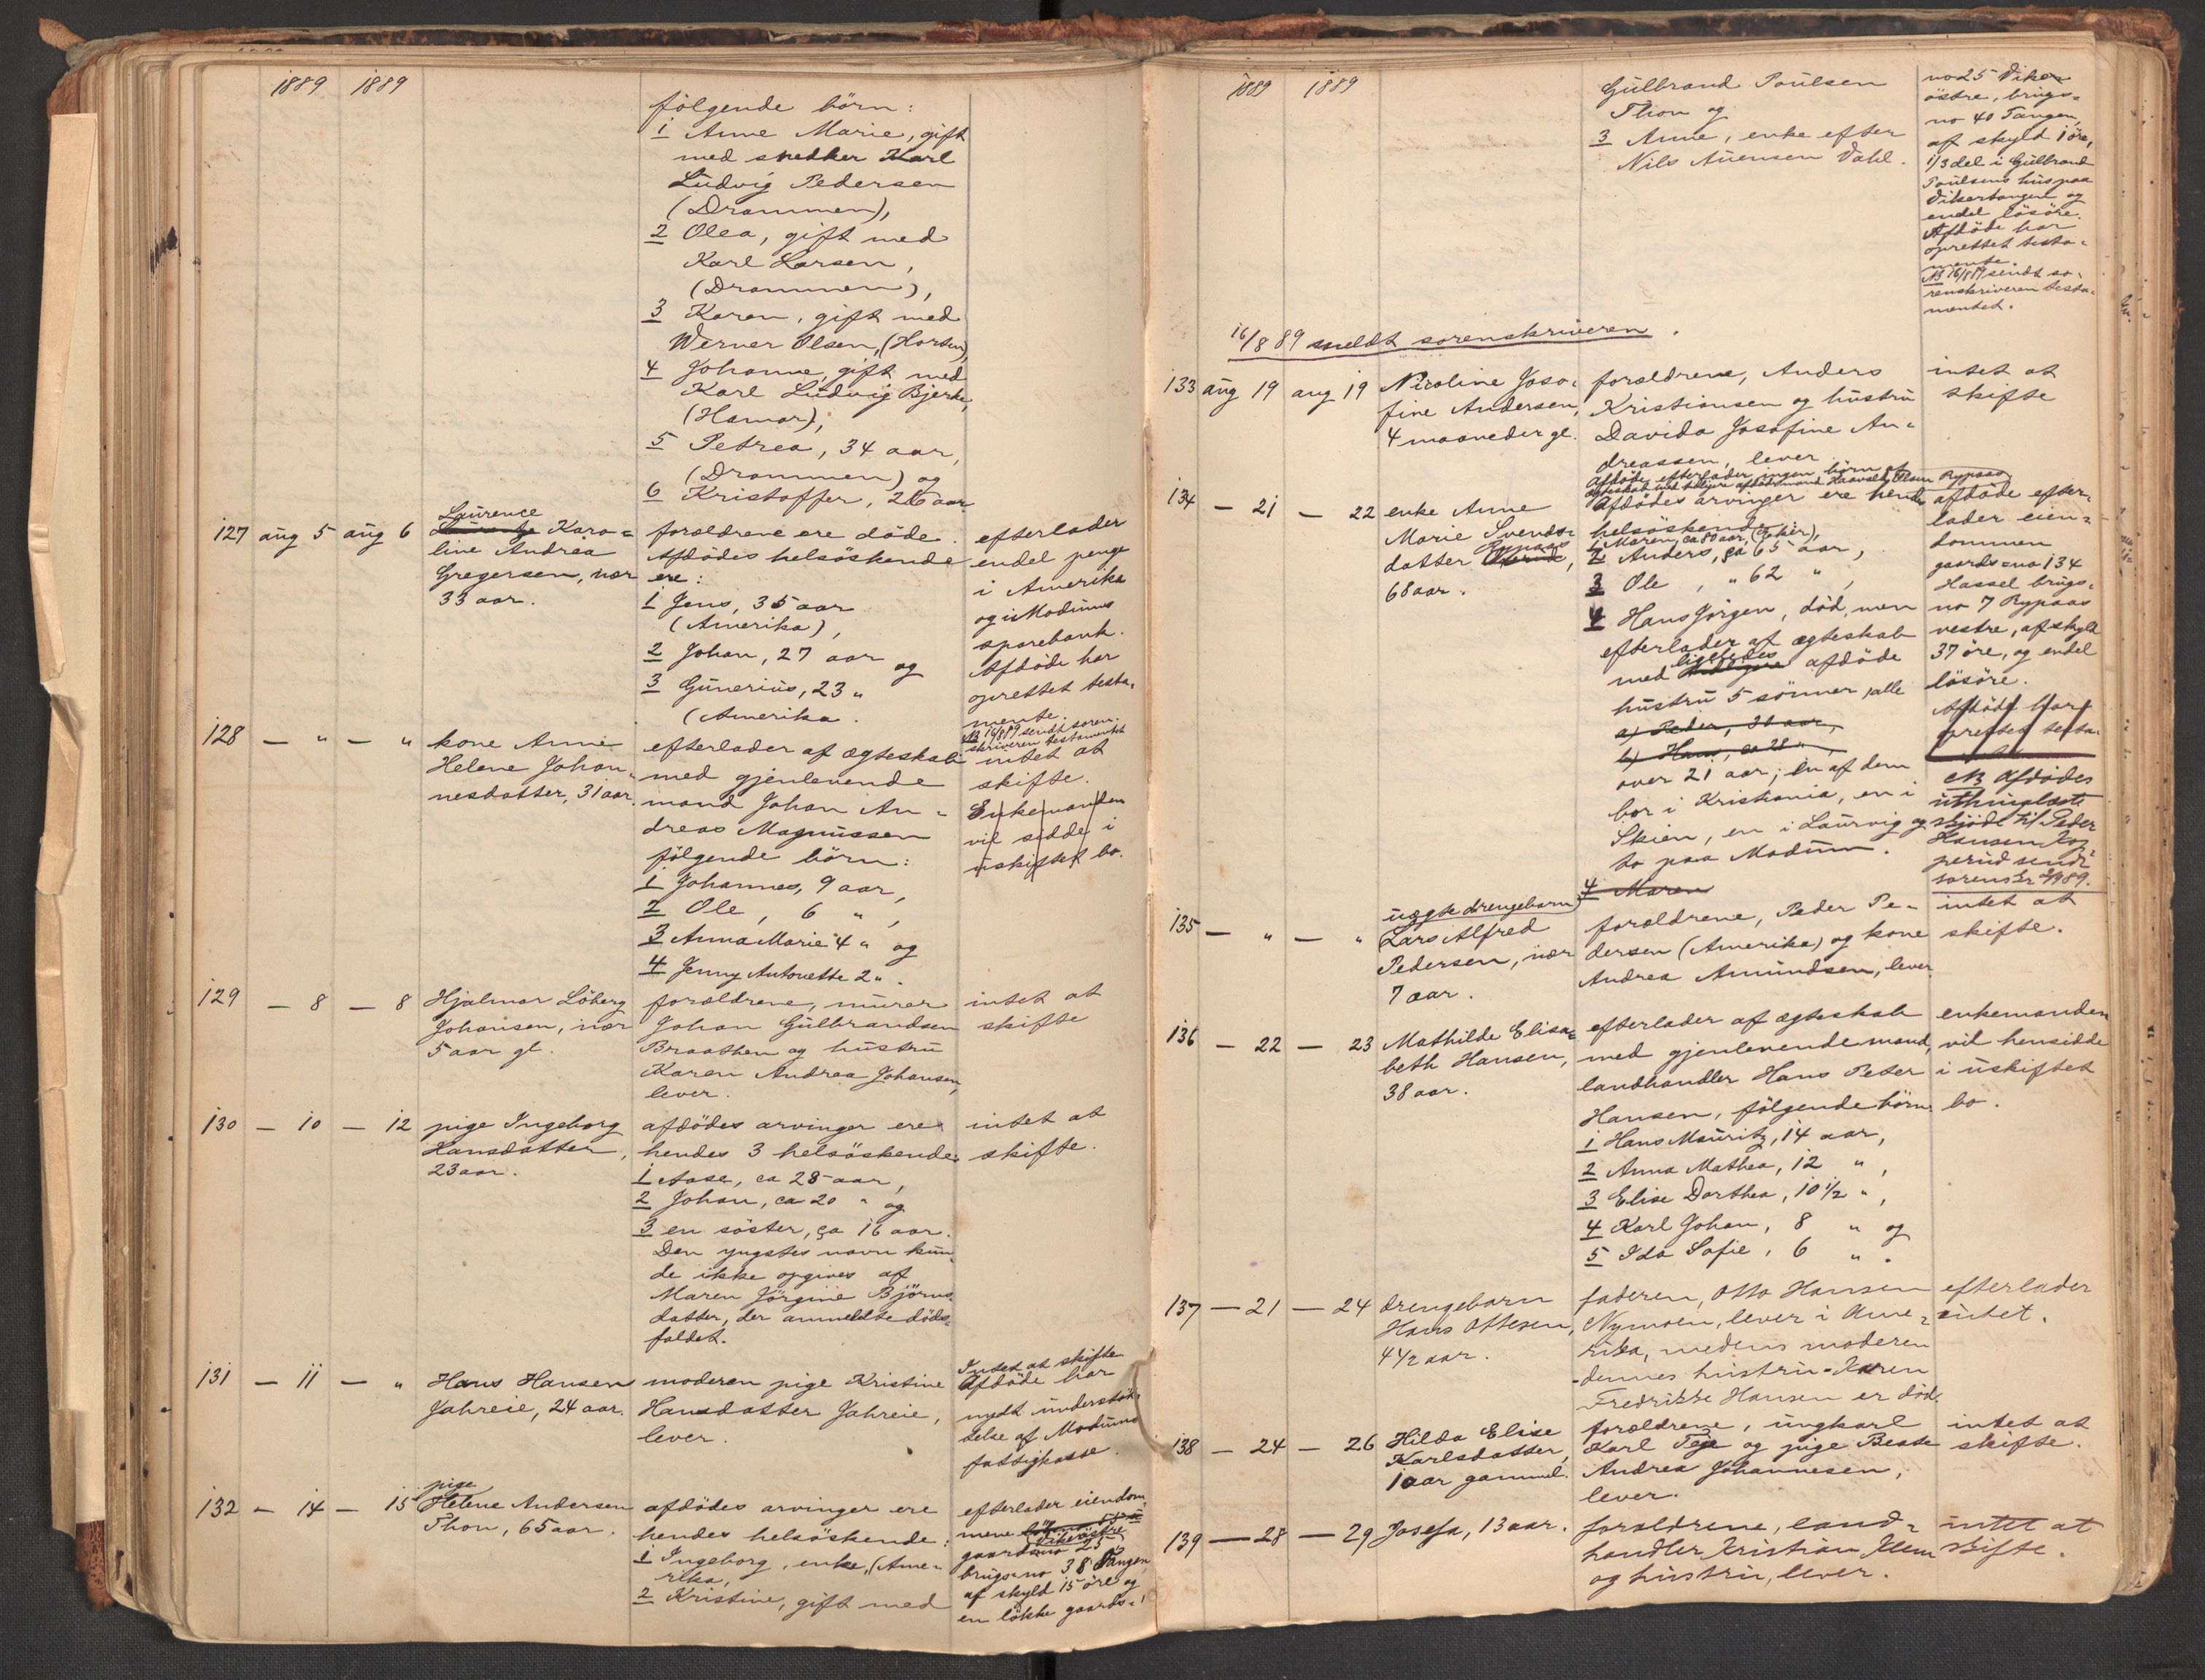 1889 1889
følgende børn:
1 Anne Marie, gift
med snedker Karl
Ludvig Pedersen
(Drammen),
2 Olea, gift med
Karl Larsen,
(Drammen),
3 Karen, gift med
Werner Olsen, (Horten)
4 Johanne, gift med
Karl Ludvig Bjerke,
(Hamar),
5 Petrea, 34 aar,
(Drammen) og
6 Kristoffer, 26 aar
127 aug 5 aug 6
Laurence
Karo=
line Andrea
Gregersen, nær
33 aar.
forældrene ere døde.
Afdødes helsøskende
ere:
1 Jens, 35 aar
(Amerika),
2 Johan, 27 aar og
3 Gunerius, 23 "
(Amerika.
efterlader
endel penge
i Amerika
og i Modums
sparebank.
Afdøde har
oprettet testa-
mente.
NB 16/8 89 sendt soren-
skriveren testamentet
128 — " — "
kone Anne
Helene Johan-
nesdatter, 31 aar.
efterlader af ægteskab
med gjenlevende
mand Johan An-
dreas Magnussen
følgende børn:
1 Johannes, 9 aar,
2 Ole, 6 ",
3 Anna Marie 4 " og
4 Jenny Antonette 2 ".
intet at
skifte.
Enkemanden
vil sidde i
uskiftet bo.
129 — 8 — 8
Hjalmar Løberg
Johansen, nær
5 aar gl.
forældrene, murer
Johan Gulbrandsen
Braathen og hustru
Karen Andrea Johansen,
lever.
intet at
skifte
130 — 10 — 12
pige Ingeborg
Hansdatter,
23 aar.
afdødes arvinger ere
hendes 3 helsøskende:
1 Aase, ca 28 aar,
2 Johan, ca 20 " og
3 en søster, ca 16 aar.
Den yngstes navn kun-
de ikke opgives af
Maren Jørgine Bjørns-
datter, der anmeldte døds-
faldet.
intet at
skifte.
131 — 11 — "
Hans Hansen
Jahreie, 24 aar.
moderen pige Kristine
Hansdatter Jahreie,
lever.
Intet at skifte
Afdøde har
nydt understøt-
telse af Modums
fattigkasse.
132 — 14 — 15
pige
Helene Andersen
Thon, 65 aar.
afdødes arvinger ere
hendes helsøskende:
1 Ingeborg, enke, (Ame-
rika,
2 Kristine, gift med
efterlader eiendom-
mene
gaards no 25
brugs no 38 Tangen
af skyld 15 øre og
en løkke gaards-
1889 1889
Gulbrand Poulsen
Thon og
3 Anne, enke efter
Nils Auensen Dahl.
no 25 Viker
østre, brugs-
no 40 Tangen,
af skyld 1 øre,
1/3 del i Gulbrand
Poulsens hus paa
Vikertangen og
endel løsøre.
Afdøde har
oprettet testa-
mente.
NB 16/8 89 sendt so-
renskriveren testa-
mentet.
16/8 89 meldt sorenskriveren.
133 aug 19 aug 19
Nicoline Jose-
fine Andersen,
4 maaneder gl.
forældrene, Anders
Kristiansen og hustru
Davida Josefine An-
dreassen, lever
intet at
skifte
134 — 21 — 22
enke Anne
Marie Svends-
datter Rypaas,
68 aar.
Afdøde efterlader ingen børn af
ægteskab med tidligere afdøde mand Haavald Olsen Rypaas
Afdødes arvinger ere hendes
helsøskende
1 Maren, ca 80 aar, (Eker),
2 Anders, ca 65 aar,
3 Ole, " 62 ",
4 Hans Jørgen, død, men
efterlader af ægteskab
med ligeledes afdøde
hustru 5 sønner, alle
a) Peder, 30 aar,
b) Hans, ca 28 ",
over 21 aar; en af dem
bor i Kristiania, en i
Skien, en i Laurvig og
to paa Modum.
4 Maren
afdøde efter-
lader eien-
dommen
gaards no 134
Hassel brugs-
no 7 Rypaas
vestre, af skyld
37 øre, og endel
løsøre.
Afdøde har
oprettet testa-
NB Afdødes
uthinglæste
skjøde til Peder
Hansen
sendt
135 — " — "
uægte drengebarn
Lars Alfred
Pedersen, nær
7 aar.
forældrene, Peder Pe-
dersen (Amerika) og kone
Andrea Amundsen, lever
intet at
skifte.
136 — 22 — 23
Mathilde Elisa-
beth Hansen,
38 aar.
efterlader af ægteskab
med gjenlevende mand,
landhandler Hans Peter
Hansen, følgende børn
1 Hans Mauritz, 14 aar,
2 Anna Mathea, 12 ",
3 Elise Dorthea, 10 1/2 ",
4 Karl Johan, 8 " og
5 Ida Sofie, 6 ".
enkemanden
vil hensidde
i uskiftet
bo.
137 — 21 — 24
drengebarn
Hans Ottesen,
4 1/2 aar.
faderen, Otto Hansen
Nymoen, lever i Ame-
rika, medens moderen
-dennes hustru- Karen
Fredrikke Hansen er død.
efterlader
intet.
138 — 24 — 26
Hilda Elise
Karlsdatter,
1 aar gammel.
forældrene, ungkarl
Karl Teje og pige Beate
Andrea Johannesen,
lever.
intet at
skifte.
139 — 28 — 29
Josefa, 13 aar.
forældrene, land-
handler Kristian Klem
og hustru, lever.
intet at
skifte.